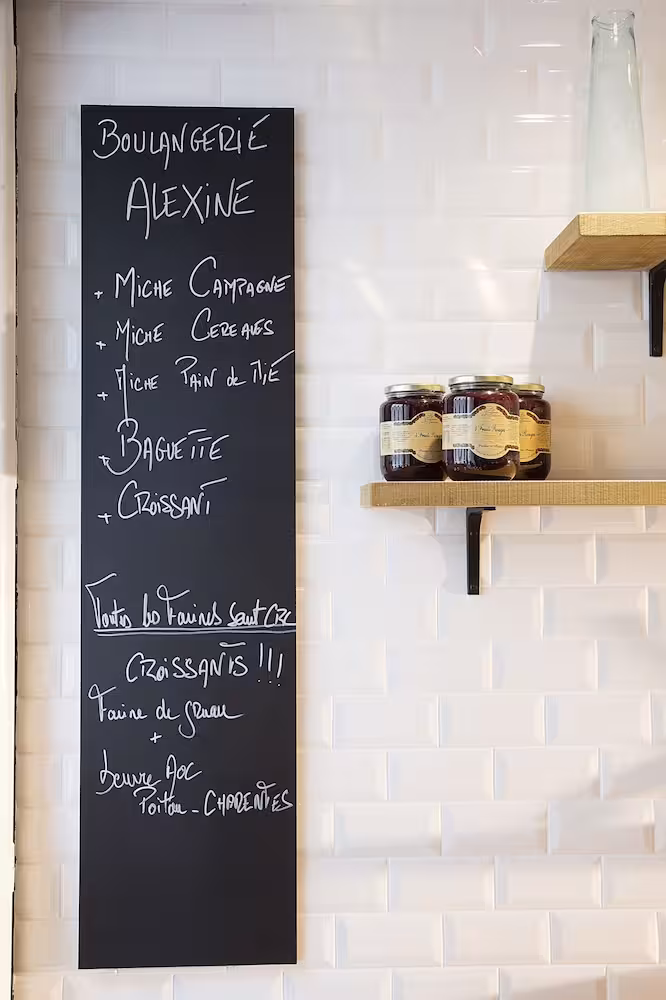 BOULANGERIE
ALEXINE
+ MICHE CAMPAGNE
+ MICHE CEREALES
+ MICHE PAIN de MIE
+ BAGUETTE
+ CROISSANT
Toutes les Farines sont CRC
CROISSANTS !!!
Farine de gruau
+
beurre AOC
Poitou - CHARENTES